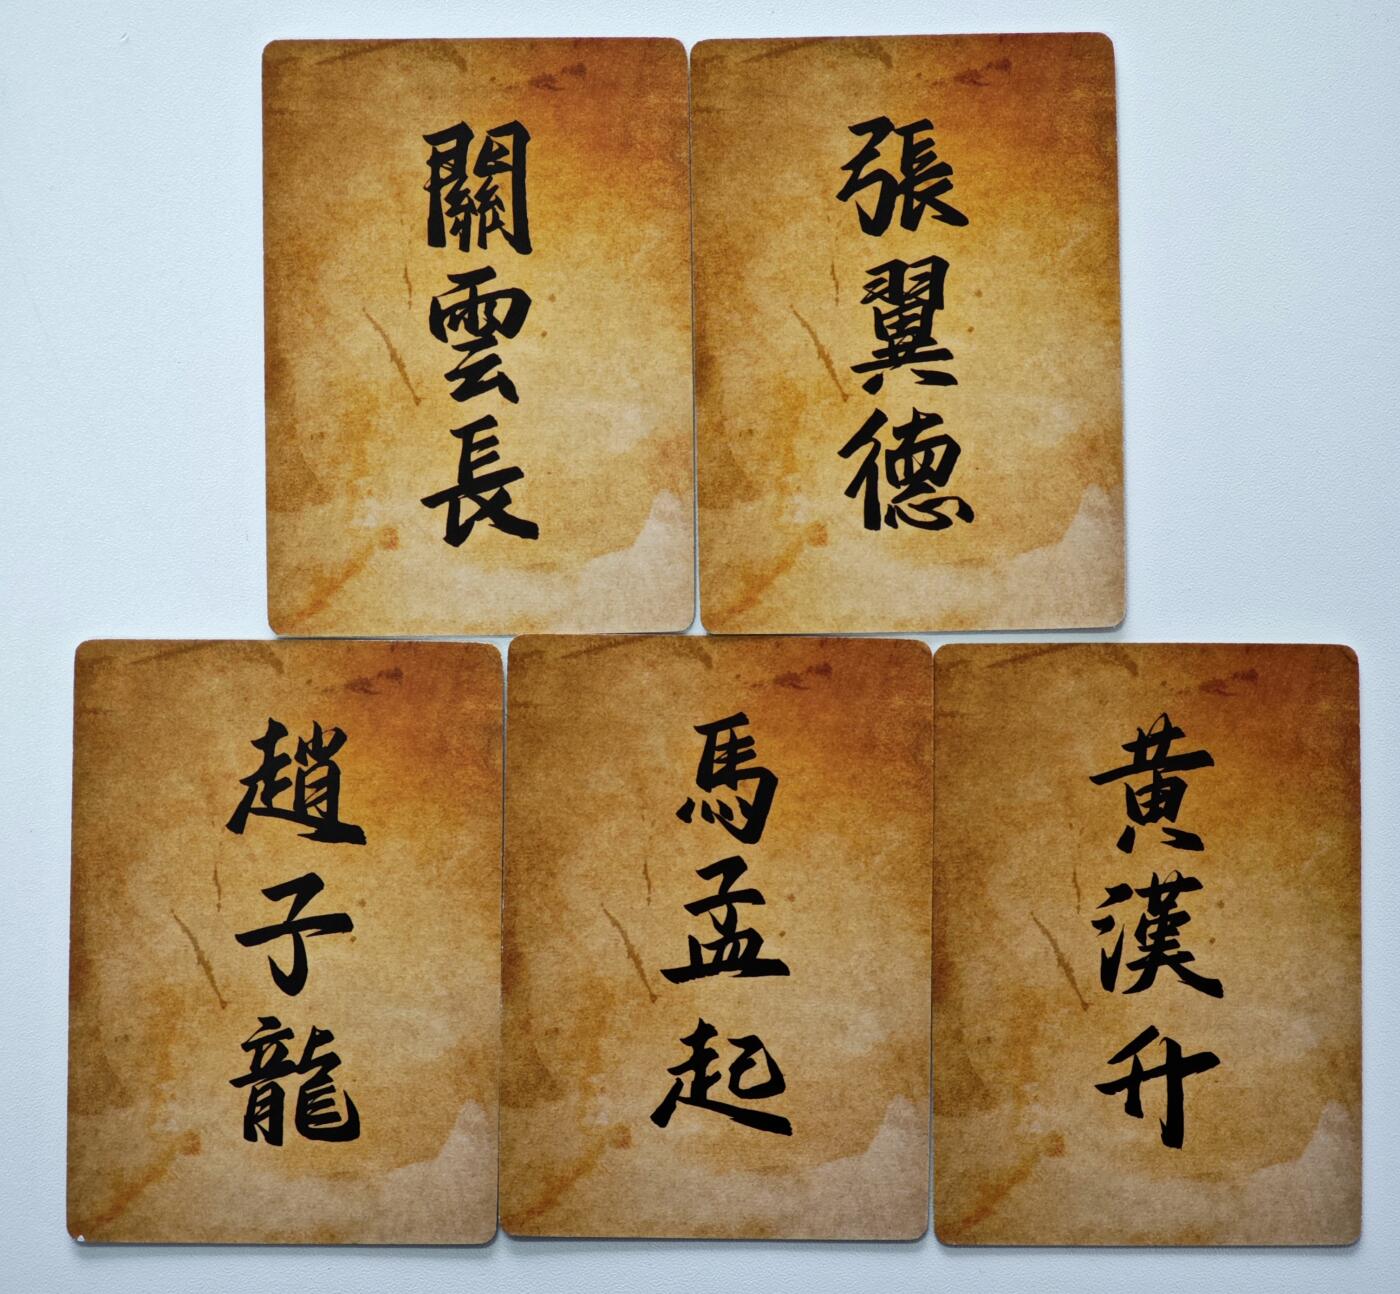 關雲長
張翼德
趙子龍
馬孟起
黃漢升